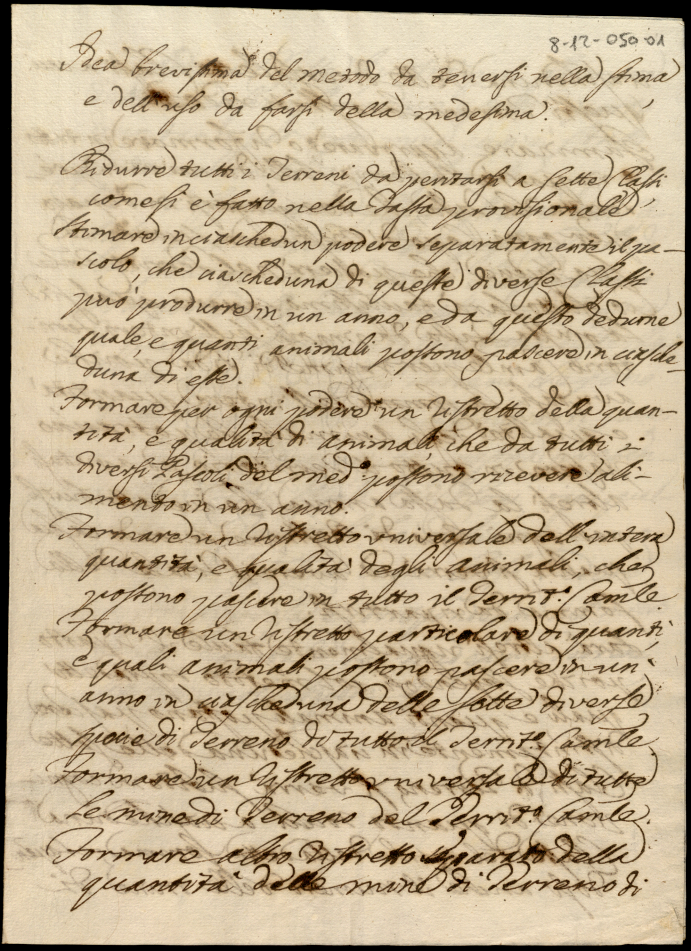 8-12-050-01
Idea brevissima del metodo da tenersi nella stima
e dell'uso da farsi della medesima.
Ridurre tutti i Terreni da peritarsi a sette Classi,
come si è fatto nella Tassa provisionale
Stimare in ciaschedun podere separatamente il pa-
scolo, che ciascheduna di queste diverse Classi
può produrre in un anno, e da questo dedurne
quale, e quanti animali possono pascere in ciasche-
duna di esse.
Formare per ogni podere un Ristretto della quan-
tità, e qualità di animali, che da tutti i
diversi Pascoli del med.o possono ricevere ali-
mento in un anno.
Formare un Ristretto universale dell'intera
quantità, e qualità degli animali, che
possono pascere in tutto il Territ.o Cam̃le
Formare un Ristretto particolare di quanti,
e quali animali possono pascere in un
anno in ciascheduna delle sette diverse
spezie di Terreno di tutto il Territ.o Cam̃le.
Formare un Ristretto universale di tutte
le mine di Terreno del Territ.o Cam̃le.
Formare altro Ristretto separato della
quantità delle mine di Terreno di